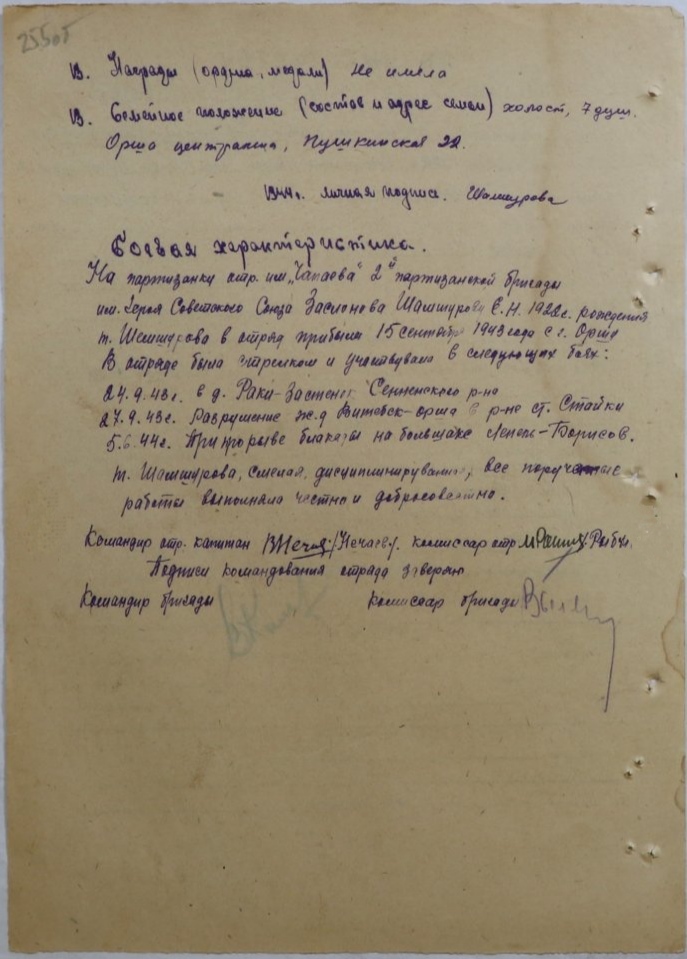 255об
13. Награды (ордена, медали) не имела
13. Семейное положение (состав и адрес семьи) холост, 7 душ.
Орша центральна, Пушкинская 22.
1944г. личная подпись. Шамшурова
Боевая характеристика.
На партизанку отр. им. „Чапаева" 2й партизанской бригады
им. Героя Советского Союза Заслонова Шамшурову Е.Н. 1922г. рождения
т. Шамшурова в отряд прибыла 15 сентября 1943 года с г. Орша
В отряде была стрелком и участвовала в следующих боях:
24.9.43г. в д. Раки-Застенок Сенненского р-на
27.9.43г. Разрушение ж.д Витебск-Орша в р-не ст. Стайки
5.6.44г. При прорыве блакады на большаке Лепель-Борисов.
т. Шамшурова, смелая, дисциплинирувание, все порученные
работы выполняла честно и добросовестно.
Командир отр. капитан /Нечаев/. комиссар отр.
Подписи командования отряда заверяю
Командир бригады комиссар бригады